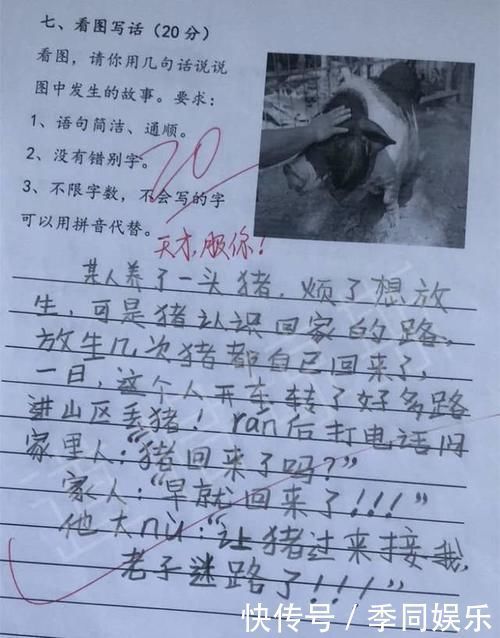 七、看图写话（20分）
看图，请你用几句话说说
图中发生的故事。要求：
1、语句简洁、通顺。
2、没有错别字。
3、不限字数，不会写的字
可以用拼音代替。
20
天才，服你！
某人养了一头猪，烦了想放
生，可是猪认识回家的路，
放生几次猪都自己回来了，
一日，这个人开车转了好多路
进山区丢猪！ran后打电话问
家里人：“猪回来了吗？”
家人：“早就回来了！！！”
他大nù：“让猪过来接我，
老子迷路了！！！”
快传号／季同娱乐